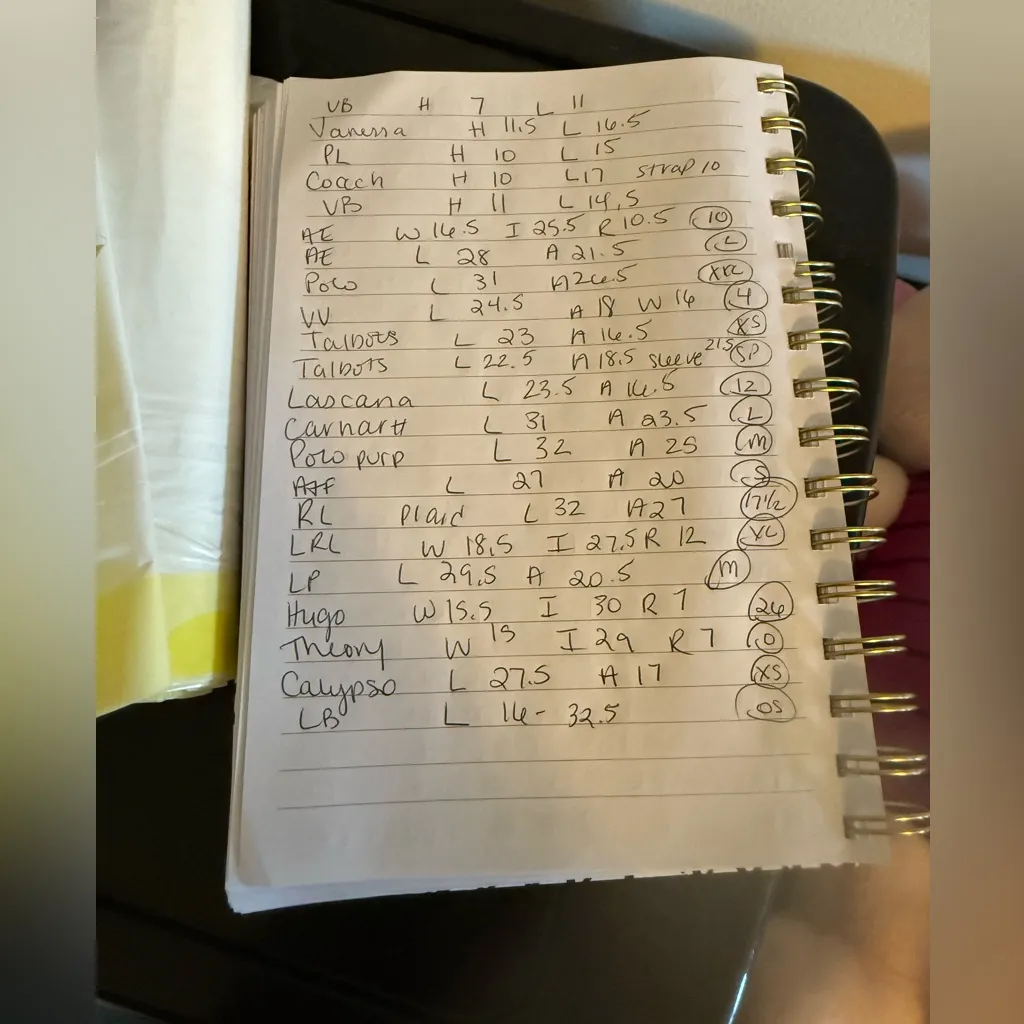 VB H 7 L 11
Vanessa H 11.5 L 16.5
PL H 10 L 15
Coach H 10 L 17 strap 10
VB H 11 L 14.5
AE W 16.5 I 25.5 R 10.5 10
AE L 28 A 21.5 L
Polo L 31 A 26.5 XXL
VV L 24.5 A 18 W 16 4
Talbots L 23 A 16.5 XS
Talbots L 22.5 A 18.5 sleeve 21.5 SP
Lascana L 23.5 A 16.5 12
Carhartt L 31 A 23.5 L
Polo purp L 32 A 25 M
A&F L 27 A 20 S
RL Plaid L 32 A 27 17 1/2
LRL W 18.5 I 27.5 R 12 XL
LP L 29.5 A 20.5 M
Hugo W 15.5 I 30 R 7 26
Theory W 15 I 29 R 7 0
Calypso L 27.5 A 17 XS
LB L 16 - 32.5 OS